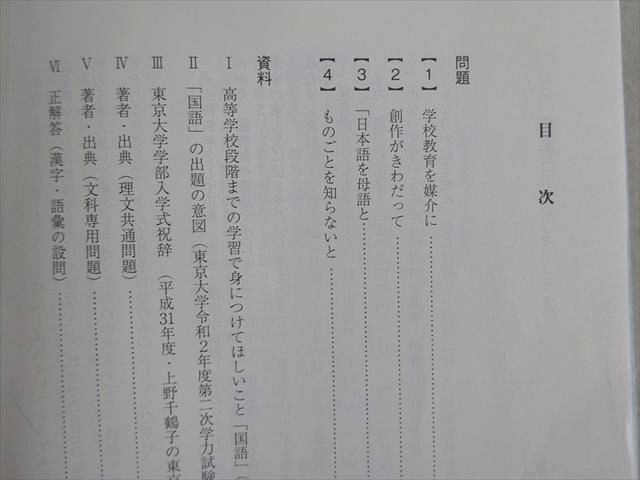 目次
問題
【1】 学校教育を媒介に……………………
【2】 創作がきわだって……………………
【3】 「日本語を母語と……………………
【4】 ものごとを知らないと……………………
資料
Ⅰ 高等学校段階までの学習で身につけてほしいこと「国語」（
Ⅱ 「国語」の出題の意図（東京大学令和2年度第二次学力試験
Ⅲ 東京大学学部入学式祝辞（平成31年度・上野千鶴子の東京
Ⅳ 著者・出典（理文共通問題）……………………
Ⅴ 著者・出典（文科専用問題）……………………
Ⅵ 正解答（漢字・語彙の設問）……………………